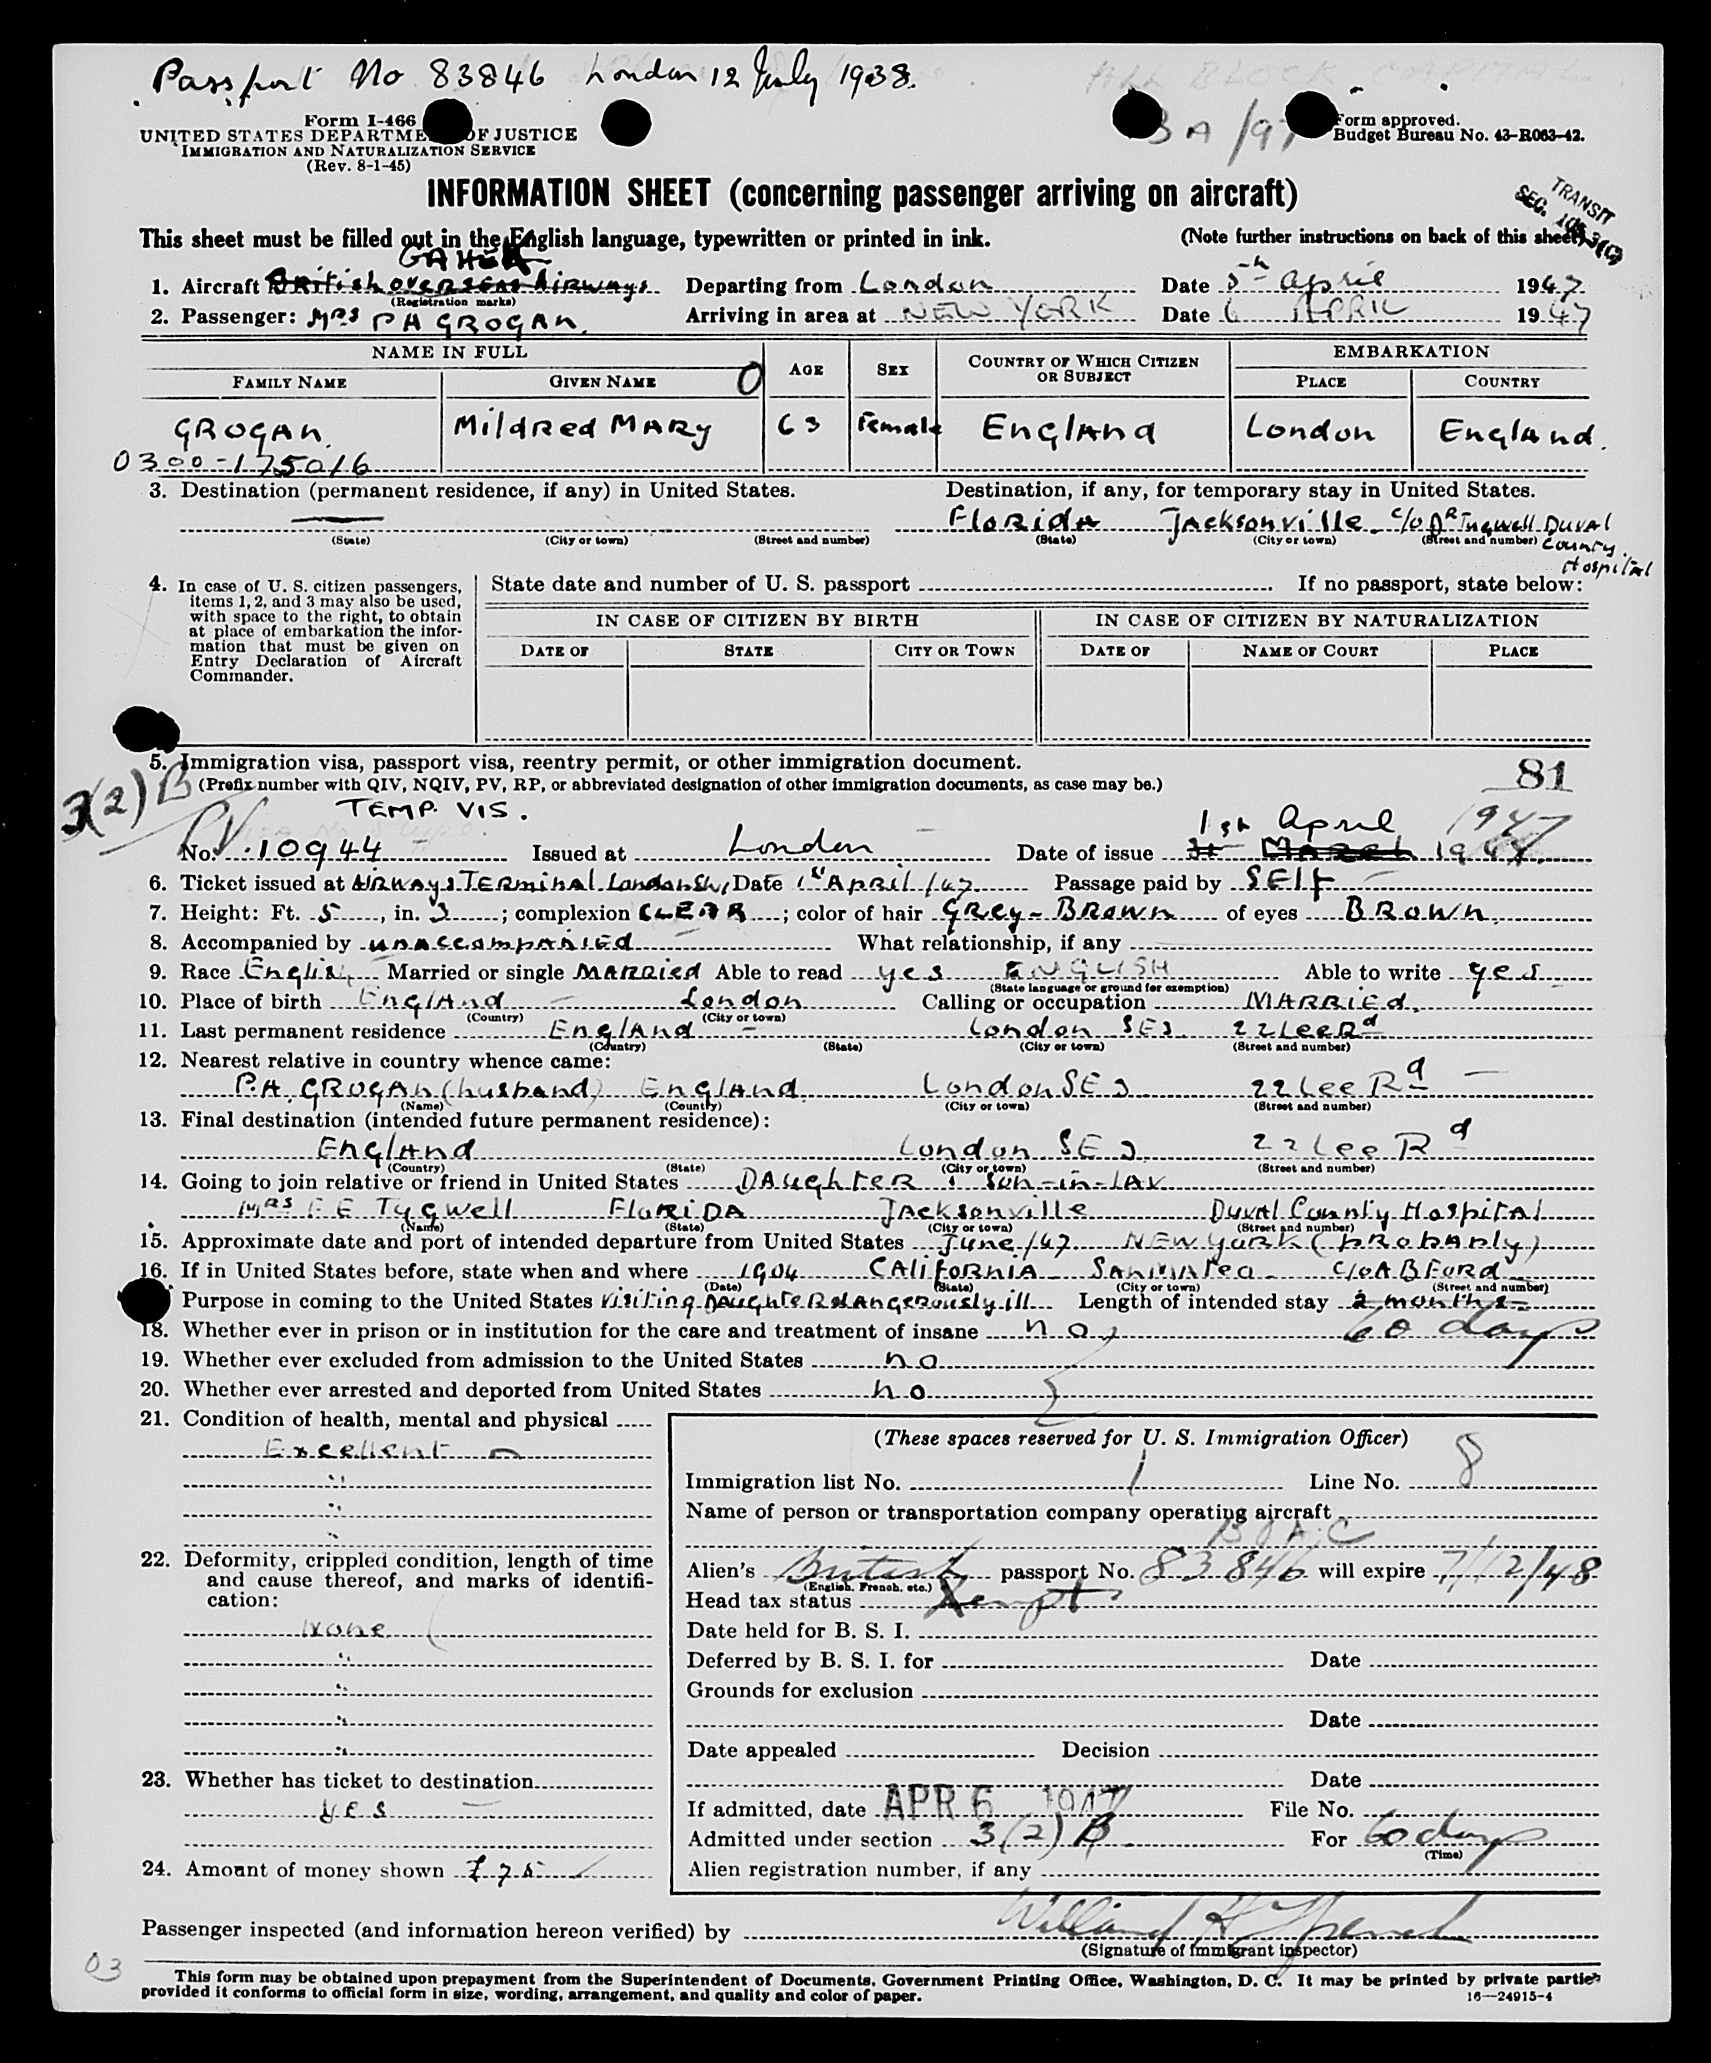 Passport No 83846 London 12 July 1938.
Form I-466
UNITED STATES DEPARTMENT OF JUSTICE
IMMIGRATION AND NATURALIZATION SERVICE
(Rev. 8-1-45)
3A/97
Form approved.
Budget Bureau No. 43-R063-42.
INFORMATION SHEET (concerning passenger arriving on aircraft)
TRANSIT
SEC.
This sheet must be filled out in the English language, typewritten or printed in ink.
(Note further instructions on back of this sheet)
1. Aircraft British overseas Airways Departing from London Date 5th April 1947
(Registration marks)
2. Passenger: MRS P A GROGAN. Arriving in area at NEW YORK Date 6 APRIL 1947
NAME IN FULL AGE SEX COUNTRY OF WHICH CITIZEN OR SUBJECT EMBARKATION
FAMILY NAME GIVEN NAME O PLACE COUNTRY
GROGAN. Mildred MARY 63 Female England London England.
0300-175016
3. Destination (permanent residence, if any) in United States. Destination, if any, for temporary stay in United States.
Florida Jacksonville c/o DR Tugwell Duval County Hospital
(State) (City or town) (Street and number) (State) (City or town) (Street and number)
4. In case of U. S. citizen passengers, items 1, 2, and 3 may also be used, with space to the right, to obtain at place of embarkation the information that must be given on Entry Declaration of Aircraft Commander.
State date and number of U. S. passport If no passport, state below:
IN CASE OF CITIZEN BY BIRTH IN CASE OF CITIZEN BY NATURALIZATION
DATE OF STATE CITY OR TOWN DATE OF NAME OF COURT PLACE
5. Immigration visa, passport visa, reentry permit, or other immigration document.
(Prefix number with QIV, NQIV, PV, RP, or abbreviated designation of other immigration documents, as case may be.)
81
3(2)B
PV TEMP. VIS.
1st April 1947
No. 10944 Issued at London Date of issue March 1947
6. Ticket issued at AIRWAYS TERMINAL London SW1 Date 1st April/47 Passage paid by SELF
7. Height: Ft. 5, in. 3; complexion CLEAR; color of hair Grey-Brown of eyes BROWN.
8. Accompanied by unaccompanied What relationship, if any
9. Race English Married or single MARRIED Able to read yes ENGLISH Able to write yes
(State language or ground for exemption)
10. Place of birth England London Calling or occupation MARRIED.
(Country) (City or town)
11. Last permanent residence England London SE3. 22 Lee Rd
(Country) (State) (City or town) (Street and number)
12. Nearest relative in country whence came:
P.A. GROGAN (husband) England London SE3 22 Lee Rd
(Name) (Country) (City or town) (Street and number)
13. Final destination (intended future permanent residence):
England London SE3 22 Lee Rd
(Country) (State) (City or town) (Street and number)
14. Going to join relative or friend in United States DAughter & Son-in-LAW
MRS F E Tugwell FloRIDA Jacksonville Duval County Hospital
(Name) (State) (City or town) (Street and number)
15. Approximate date and port of intended departure from United States June/47 NEW YORK (probably)
16. If in United States before, state when and where 1904 CAlifoRNIA San Mateo c/o A B FORD
(Date) (State) (City or town) (Street and number)
Purpose in coming to the United States Visiting Daughter dangerously ill Length of intended stay 2 months
60 days
18. Whether ever in prison or in institution for the care and treatment of insane no
19. Whether ever excluded from admission to the United States no
20. Whether ever arrested and deported from United States no
21. Condition of health, mental and physical
Excellent
(These spaces reserved for U. S. Immigration Officer)
Immigration list No. 1 Line No. 8
Name of person or transportation company operating aircraft
B O A C
22. Deformity, crippled condition, length of time and cause thereof, and marks of identification:
None
Alien's British passport No. 83846 will expire 7/12/48
(English, French, etc.)
Head tax status Exempt
Date held for B. S. I.
Deferred by B. S. I. for Date
Grounds for exclusion
Date
Date appealed Decision
23. Whether has ticket to destination
yes
Date
If admitted, date APR 6 1947 File No.
Admitted under section 3(2)B For 60 days
(Time)
24. Amount of money shown £75
Alien registration number, if any
Passenger inspected (and information hereon verified) by
(Signature of immigrant inspector)
03
This form may be obtained upon prepayment from the Superintendent of Documents, Government Printing Office, Washington, D. C. It may be printed by private parties
provided it conforms to official form in size, wording, arrangement, and quality and color of paper.
16—24915-4